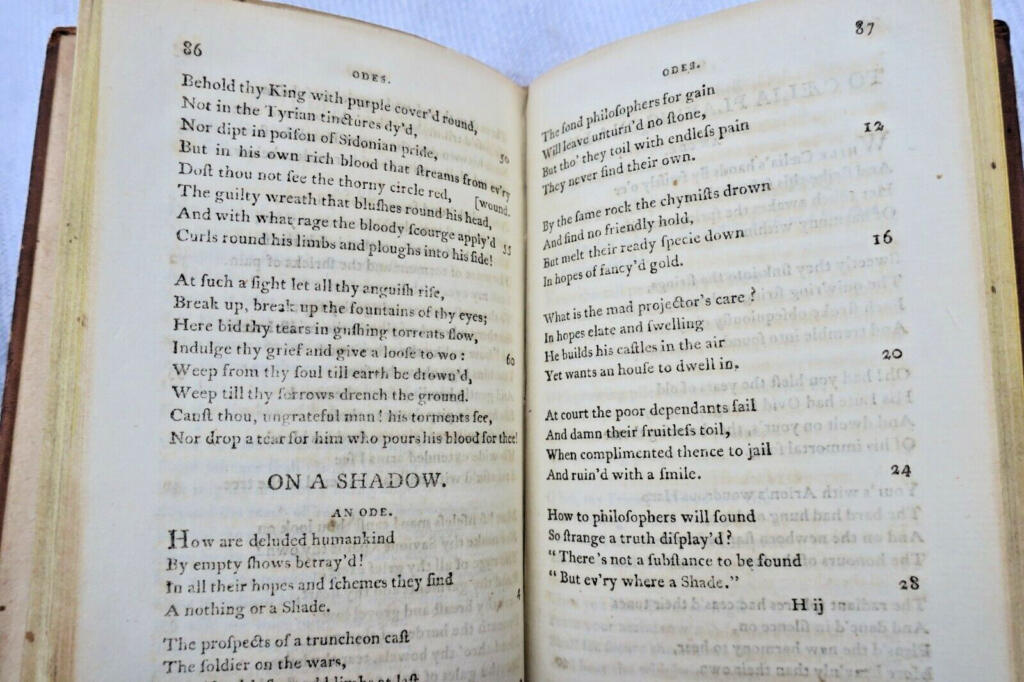 86
ODES.
Behold thy King with purple cover'd round,
Not in the Tyrian tinctures dy'd,
Nor dipt in poiſon of Sidonian pride, 50
But in his own rich blood that ſtreams from ev'ry
[wound.
Doſt thou not ſee the thorny circle red,
The guilty wreath that bluſhes round his head,
And with what rage the bloody ſcourge apply'd 55
Curls round his limbs and ploughs into his ſide!
At ſuch a ſight let all thy anguiſh riſe,
Break up, break up the fountains of thy eyes;
Here bid thy tears in guſhing torrents flow,
Indulge thy grief and give a looſe to wo: 60
Weep from thy ſoul till earth be drown'd,
Weep till thy ſorrows drench the ground.
Canſt thou, ungrateful man! his torments ſee,
Nor drop a tear for him who pours his blood for thee!
ON A SHADOW.
AN ODE.
How are deluded humankind
By empty ſhows betray'd!
In all their hopes and ſchemes they find
A nothing or a Shade. 4
The proſpects of a truncheon caſt
The ſoldier on the wars,
87
ODES.
The fond philoſophers for gain
Will leave unturn'd no ſtone,
But tho' they toil with endleſs pain 12
They never find their own.
By the ſame rock the chymiſts drown
And find no friendly hold,
But melt their ready ſpecie down 16
In hopes of fancy'd gold.
What is the mad projector's care?
In hopes elate and ſwelling
He builds his caſtles in the air
Yet wants an houſe to dwell in. 20
At court the poor dependants fail
And damn their fruitleſs toil,
When complimented thence to jail
And ruin'd with a ſmile. 24
How to philoſophers will ſound
So ſtrange a truth diſplay'd?
"There's not a ſubſtance to be found
"But ev'ry where a Shade." 28
H ij